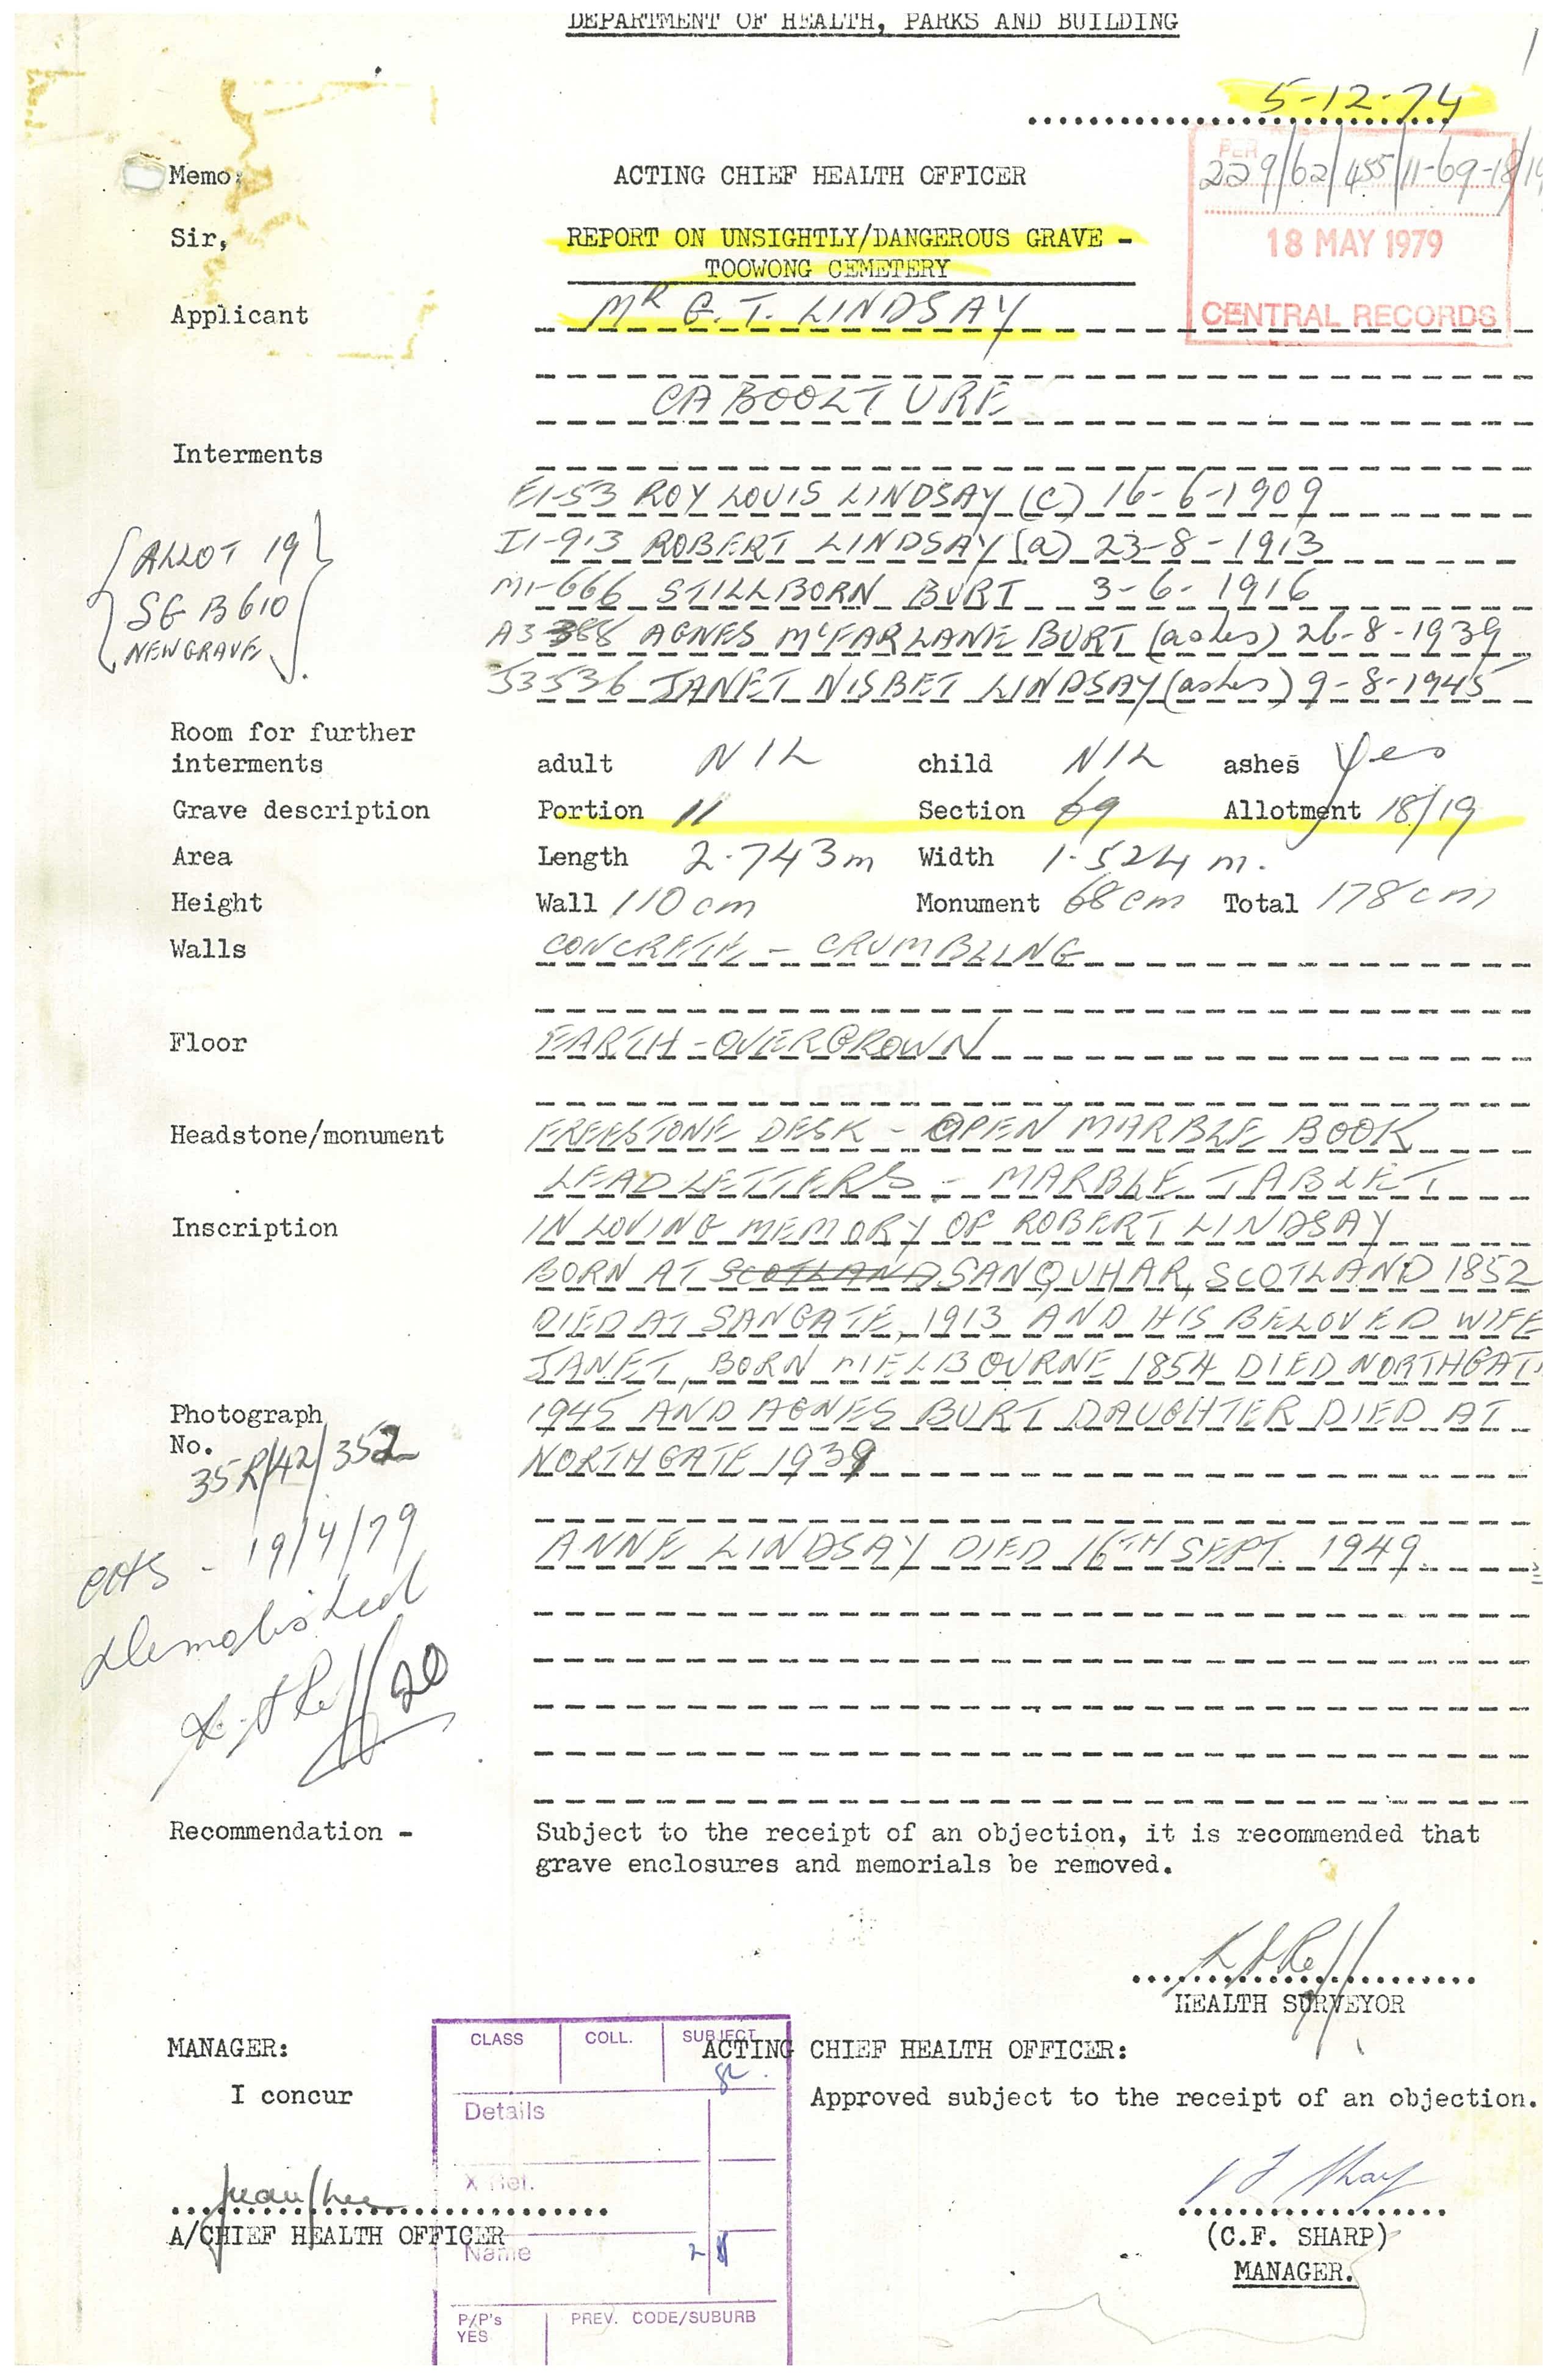 DEPARTMENT OF HEALTH, PARKS AND BUILDING
5-12-74
Memo: ACTING CHIEF HEALTH OFFICER
PER
229/62/455/11-69-18/19
18 MAY 1979
CENTRAL RECORDS
Sir, REPORT ON UNSIGHTLY/DANGEROUS GRAVE -
TOOWONG CEMETERY
Applicant MR G. T. LINDSAY
CABOOLTURE
Interments
E1-53 ROY LOUIS LINDSAY (C) 16-6-1909
I1-913 ROBERT LINDSAY (a) 23-8-1913
M1-666 STILLBORN BURT 3-6-1916
A3 388 AGNES McFARLANE BURT (ashes) 26-8-1939
J3536 JANET NISBET LINDSAY (ashes) 9-8-1945
ALLOT 19
SG B610
NEW GRAVE
Room for further
interments adult NIL child NIL ashes Yes
Grave description Portion 11 Section 69 Allotment 18/19
Area Length 2.743m Width 1.524 m.
Height Wall 110 cm Monument 68 cm Total 178 cm
Walls CONCRETE - CRUMBLING
Floor EARTH - OVERGROWN
Headstone/monument FREESTONE DESK - OPEN MARBLE BOOK
LEAD LETTERS - MARBLE TABLET
Inscription IN LOVING MEMORY OF ROBERT LINDSAY
BORN AT SCOTLAND SANQUHAR, SCOTLAND 1852
DIED AT SANGATE, 1913 AND HIS BELOVED WIFE
JANET, BORN MELBOURNE 1854 DIED NORTHGATE
1945 AND AGNES BURT DAUGHTER DIED AT
NORTHGATE 1939
ANNE LINDSAY DIED 16TH SEPT. 1949.
Photograph
No.
35R/42/352
19/4/79
Demolished
20
Recommendation - Subject to the receipt of an objection, it is recommended that
grave enclosures and memorials be removed.
HEALTH SURVEYOR
MANAGER: ACTING CHIEF HEALTH OFFICER:
I concur Approved subject to the receipt of an objection.
A/CHIEF HEALTH OFFICER
(C.F. SHARP)
MANAGER.
CLASS COLL. SUBJECT
Details
X Ref.
Name
P/P's PREV. CODE/SUBURB
YES